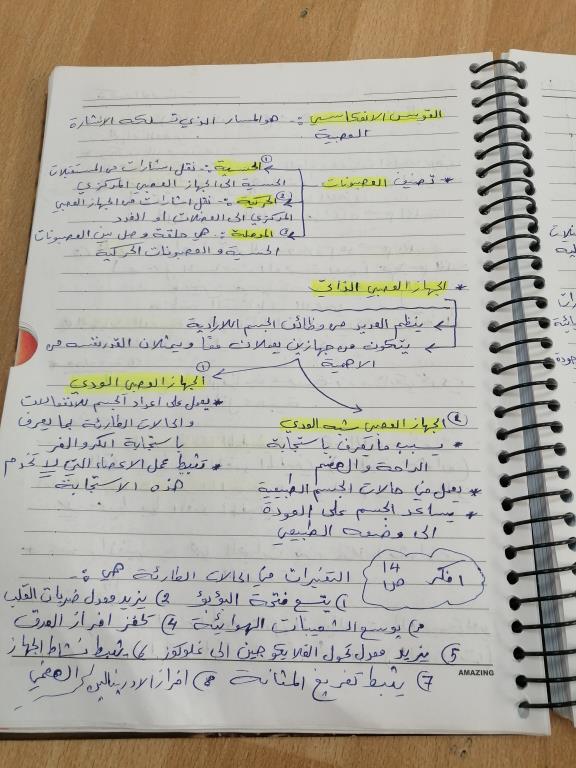 القوس الانعكاسي :- هو المسار الذي تسلكه الإشارة
العصبية
* تصنف العصبونات
① الحسية :- نقل اشارات من المستقبلات
الحسية الى الجهاز العصبي المركزي
② الحركية :- نقل اشارات من الجهاز العصبي
المركزي الى العضلات او الغدد
③ الموصلة :- هي حلقة وصل بين العصبونات
الحسية و العصبونات الحركية
* الجهاز العصبي الذاتي
ينظم العديد من وظائف الجسم اللاارادية
يتكون من جهازين يعملان معًا ويمثلان القدر نفسه من
الاهمية
① الجهاز العصبي الودي
* يعمل على اعداد الجسم للانفعالات
والحالات الطارئة بما يعرف
باستجابة الكر والفر
* تثبط عمل الاعضاء التي لا تخدم
هذه الاستجابة
② الجهاز العصبي شبه الودي
* يسبب ما يعرف باستجابة
الراحة والهضم
* يعمل في حالات الجسم الطبيعية
* يساعد الجسم على العودة
الى وضعه الطبيعي
افكر ص 14
التغيرات في الحالات الطارئة هي :-
1) يتسع فتحة البؤبؤ 2) يزيد معدل ضربات القلب
3) يوسع الشعيبات الهوائية 4) تحفز افراز العرق
5) يزيد معدل تحول الغلايكوجين الى غلوكوز 6) يثبط نشاط الجهاز
الهضمي
7) يثبط تفريغ المثانة 8) افراز الادرينالين
AMAZING